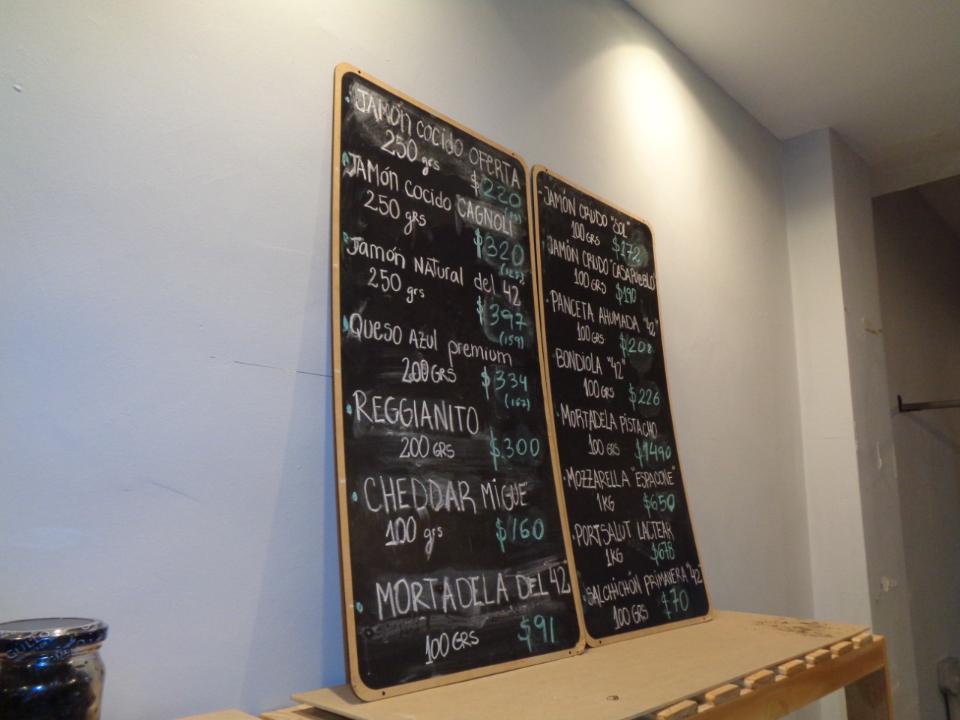 JAMÓN COCIDO OFERTA
250 grs $220
JAMÓN COCIDO CAGNOLI
250 grs $320
JAMÓN NATURAL del 42
250 grs $397
(159)
QUESO AZUL premium
200 GRS $334
(167)
REGGIANITO
200 GRS $300
CHEDDAR MIGUE
100 grs $160
MORTADELA DEL 42
100 GRS $91
JAMÓN CRUDO "SOL"
100 GRS $172
JAMÓN CRUDO "CASA PUEBLO"
100 GRS $190
PANCETA AHUMADA "42"
100 GRS $208
BONDIOLA "42"
100 GRS $226
MORTADELA PISTACHO
100 GRS $1490
MOZZARELLA
1 KG $650
PORTSALUT LACTEAR
1 KG $678
SALCHICHÓN PRIMAVERA "42"
100 GRS $70